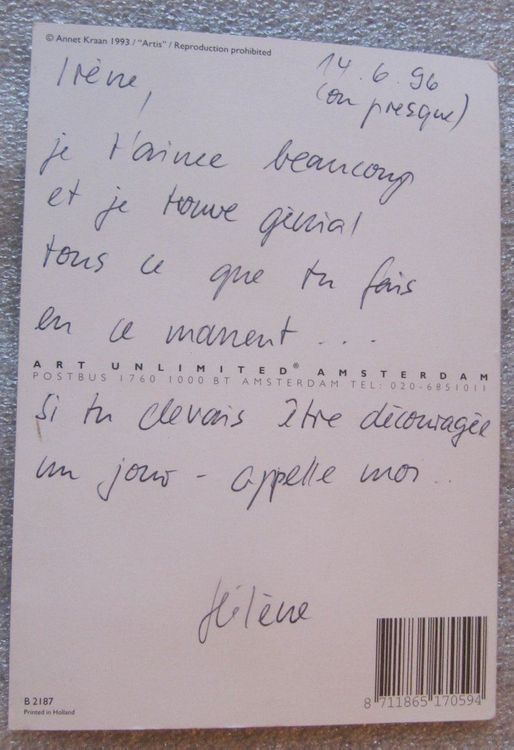 © Annet Kraan 1993 / "Artis" / Reproduction prohibited
14.6.96
(ou presque)
Irène,
je t'aime beaucoup
et je trouve génial
tous ce que tu fais
en ce moment...
ART UNLIMITED® AMSTERDAM
POSTBUS 1760 1000 BT AMSTERDAM TEL: 020-6851011
Si tu devais être découragée
un jour - appelle moi..
Hélène
B 2187
Printed in Holland
8 711865 170594